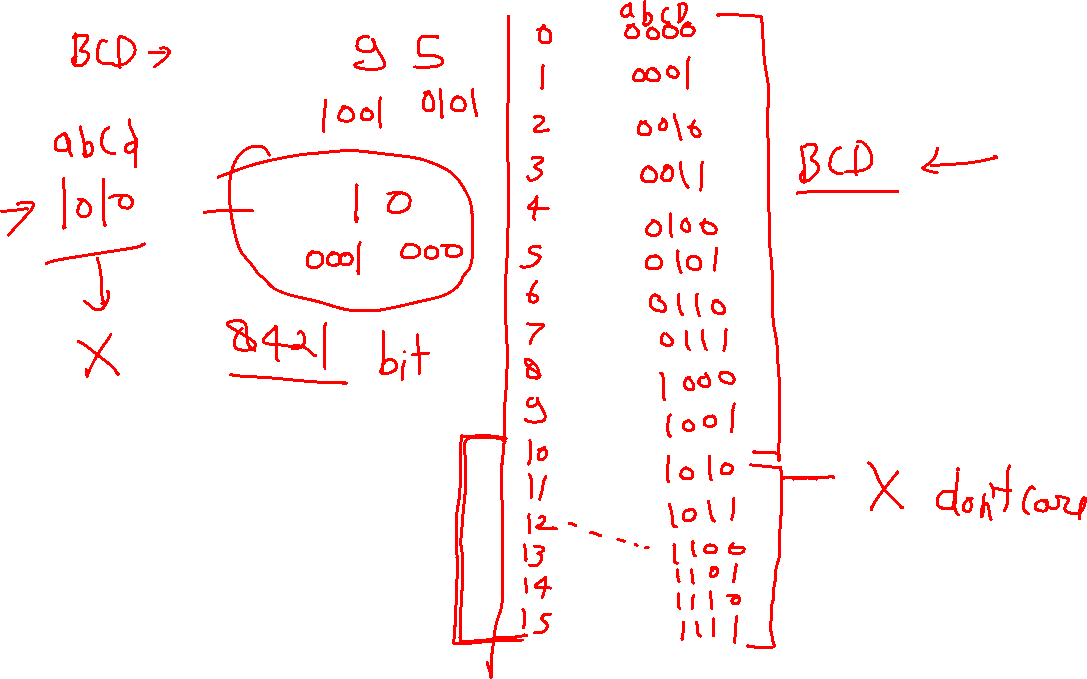 BCD →
9 5
1001 0101
abcd
→ 1010
1 0
0001 000
X
8421 bit
abcD
0 0000
1 0001
2 0010
3 0011
4 0100
5 0101
6 0110
7 0111
8 1000
9 1001
10 1010
11 1011
12 1100
13 1101
14 1110
15 1111
BCD ←
X don't care